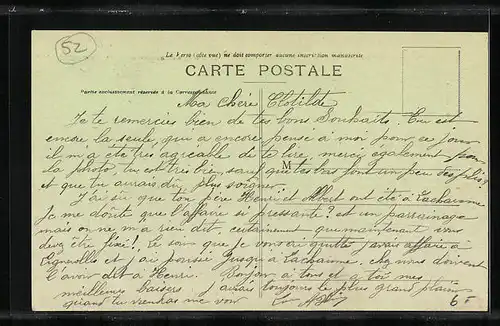 52
Le Verso (côté vue) ne doit comporter aucune inscription manuscrite
CARTE POSTALE
Partie exclusivement réservée à la Correspondance
Ma Chère Clotilde
Je te remercie bien de tes bons Souhaits. Tu est
encore la seule, qui a encore pensé à moi pour ce jour
il m'a été très agréable de te lire, merci également pour
la photo, tu est très bien, sauf que les bas font un peu des plis
M
et que tu aurais dû plus soigner
J'ai su que ton père Henri et Albert ont été à Lachaume
Je me doute que l'affaire si pressante? est un parrainage
mais on ne m'a rien dit, certainement que maintenant vous
devez être fixé!. Le soir que je vous ai quitté j'avais affaire à
Lignerolles et j'ai poussé jusqu'à Lachaume, chez vous doivent
l'avoir dit à Henri. Bonjour à tous et à toi mes
meilleurs baisers j'aurai toujours le plus grand plaisir
quand tu viendras me voir
6-